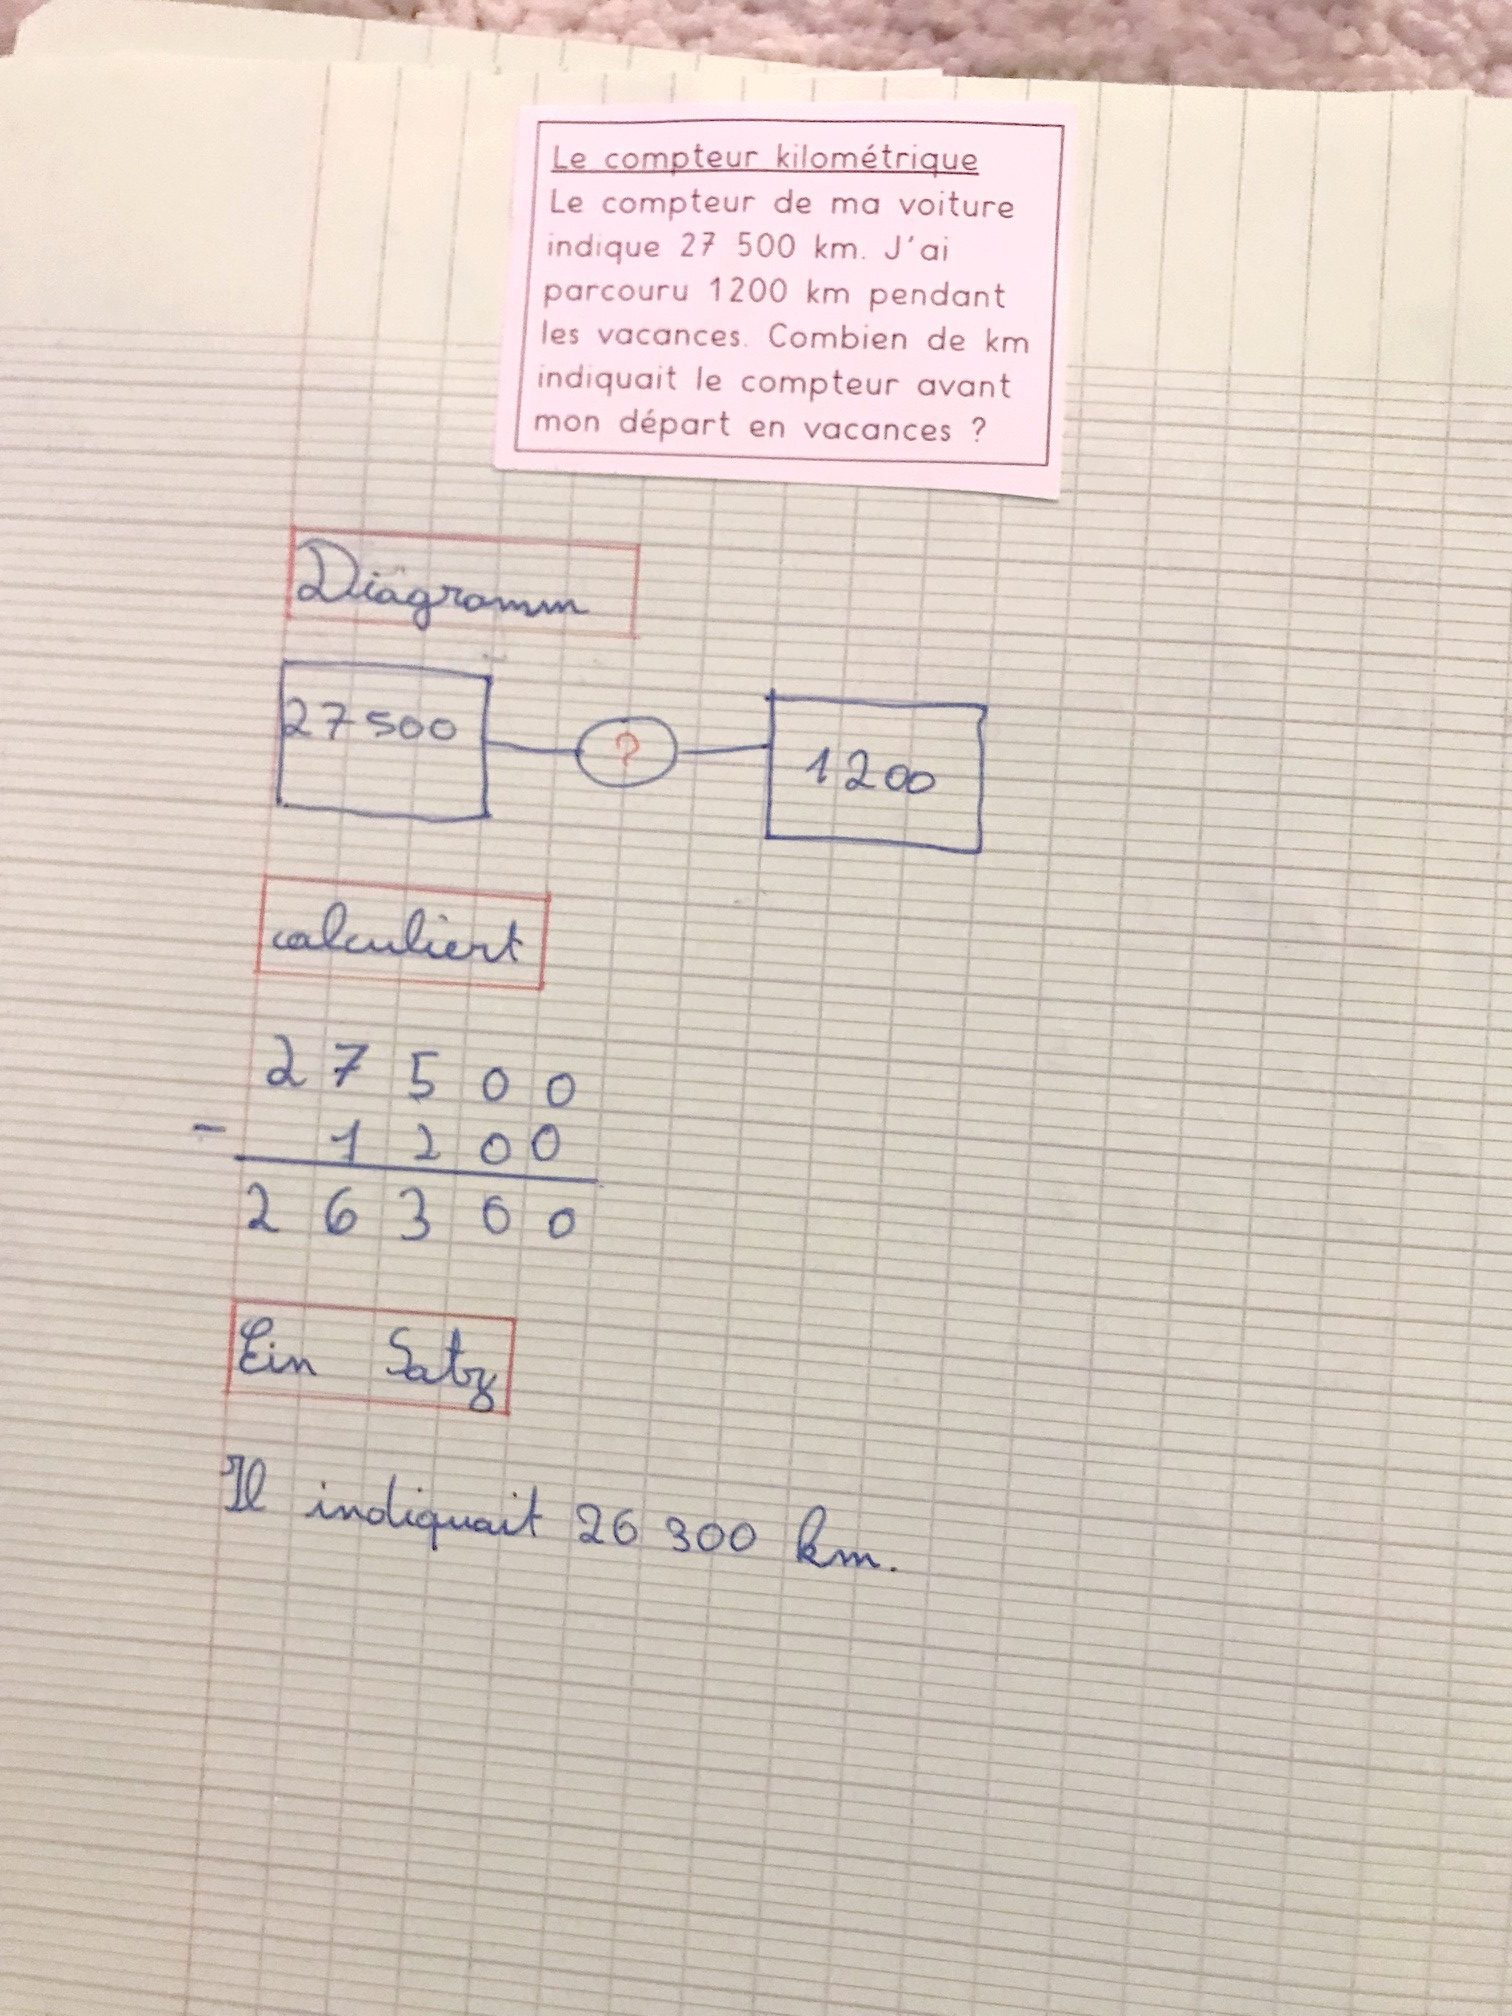 Le compteur kilométrique
Le compteur de ma voiture
indique 27 500 km. J'ai
parcouru 1200 km pendant
les vacances. Combien de km
indiquait le compteur avant
mon départ en vacances ?
Diagramm
27 500 ? 1200
calculiert
2 7 5 0 0
- 1 2 0 0
2 6 3 0 0
Ein Satz
Il indiquait 26 300 km.